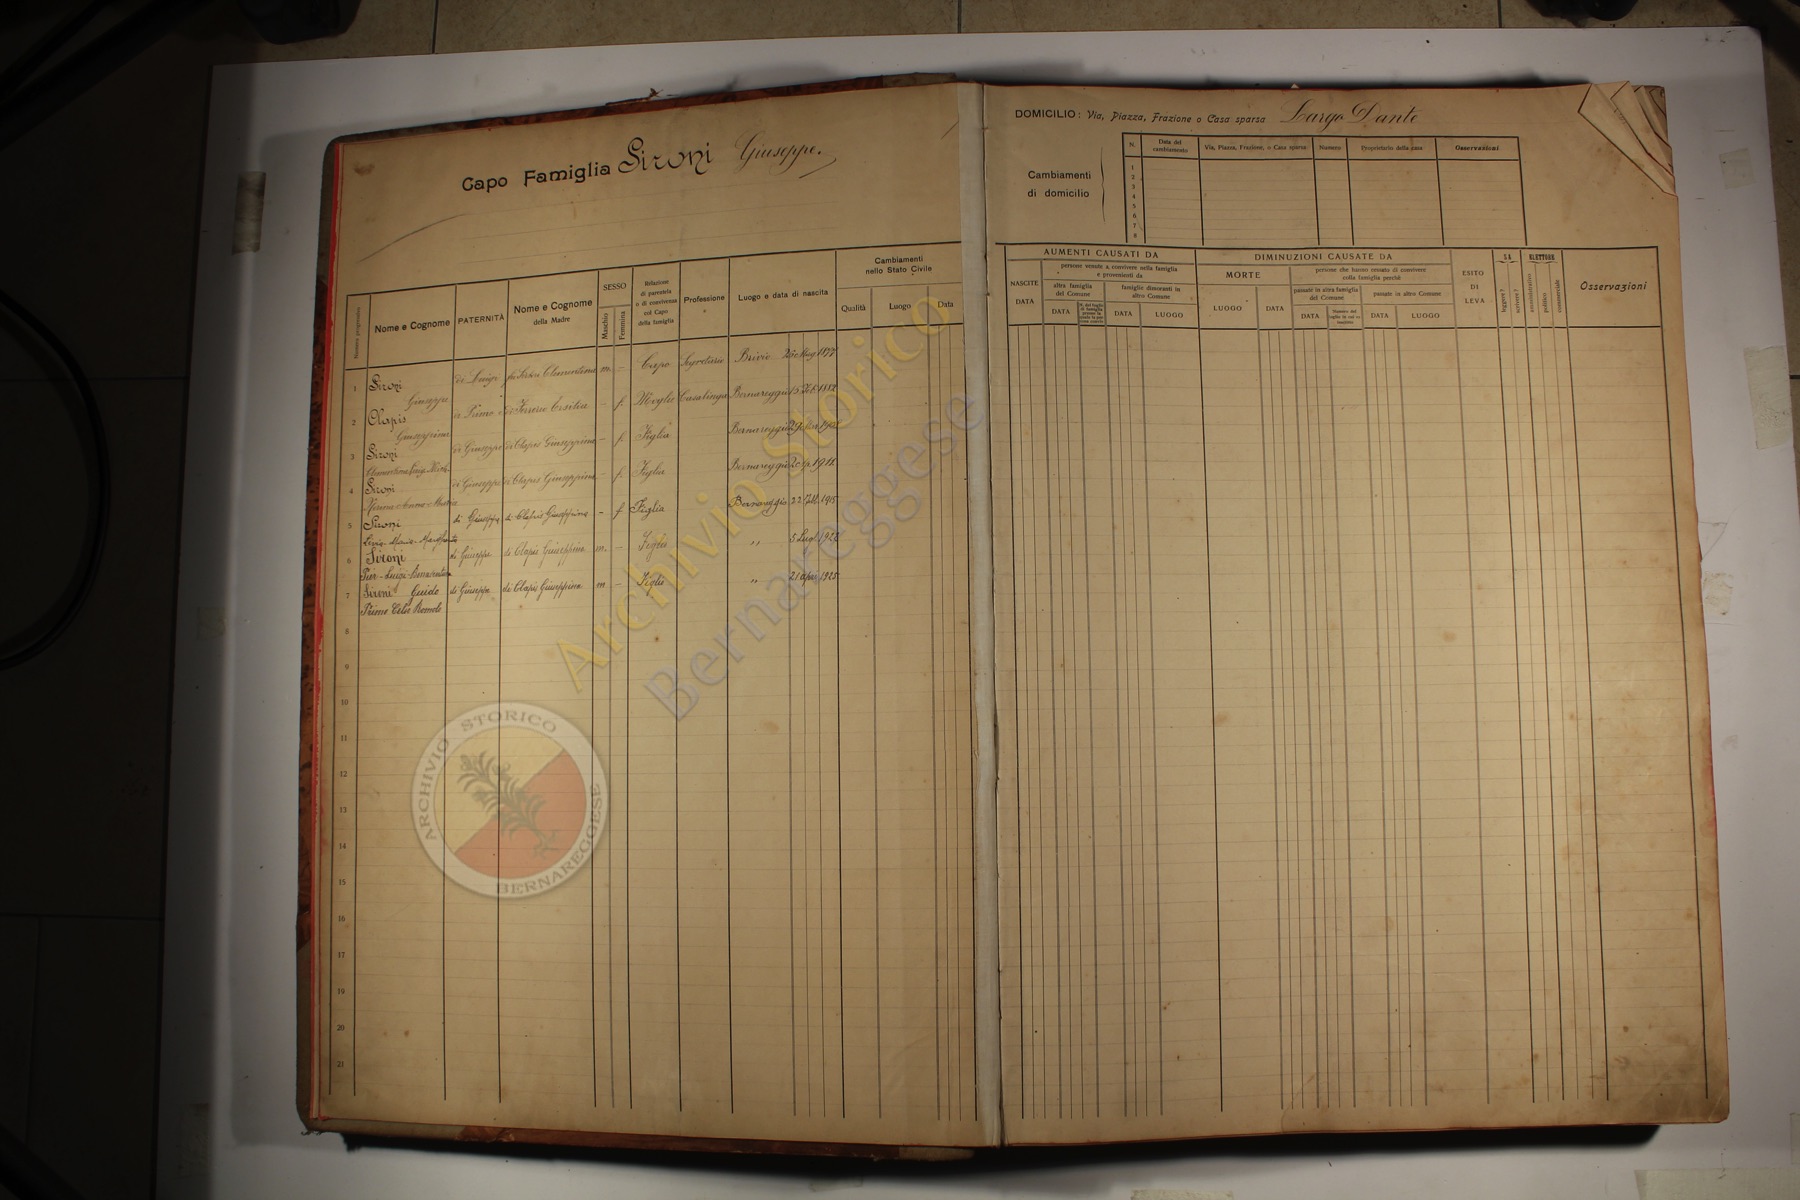 Capo Famiglia Sironi Giuseppe.
DOMICILIO: Via, Piazza, Frazione o Casa sparsa Largo Dante
Cambiamenti
di domicilio
N. Data del cambiamento Via, Piazza, Frazione, o Casa sparsa Numero Proprietario della casa Osservazioni
1
2
3
4
5
6
7
8
Numero progressivo
Nome e Cognome
PATERNITÀ
Nome e Cognome
della Madre
SESSO
Maschio
Femmina
Relazione
di parentela
o di convivenza
col Capo
della famiglia
Professione
Luogo e data di nascita
Cambiamenti
nello Stato Civile
Qualità
Luogo
Data
AUMENTI CAUSATI DA
NASCITE
DATA
persone venute a convivere nella famiglia
e provenienti da
altra famiglia
del Comune
DATA
famiglie dimoranti in
altro Comune
DATA
LUOGO
DIMINUZIONI CAUSATE DA
MORTE
LUOGO
DATA
persone che hanno cessato di convivere
colla famiglia perchè
passate in altra famiglia
del Comune
DATA
passate in altro Comune
DATA
LUOGO
ESITO
DI
LEVA
SA
leggere?
scrivere?
ELETTORE
amministrativo
politico
commerciale
Osservazioni
1 Sironi Giuseppe di Luigi Clementina m. – Capo Segretario Brivio 1877
2 Clapis Giuseppina di Primo di Ferrario Ersilia – f. Moglie Casalinga Bernareggio 15 1882
3 Sironi di Giuseppe di Clapis Giuseppina – f. Figlia Bernareggio
4 Sironi di Giuseppe di Clapis Giuseppina – f. Figlia Bernareggio 1911
5 Sironi di Giuseppe di Clapis Giuseppina – f. Figlia Bernareggio 22 1915
6 Sironi Pier-Luigi-Bonaventura di Giuseppe di Clapis Giuseppina m. – Figlio ,, 5 Lugl. 1923
7 Sironi Guido Primo Celso Romolo di Giuseppe di Clapis Giuseppina m – Figlio ,, 21 1925
8
9
10
11
12
13
14
15
16
17
18
19
20
21
Archivio Storico
Bernareggese
ARCHIVIO STORICO
BERNAREGGESE